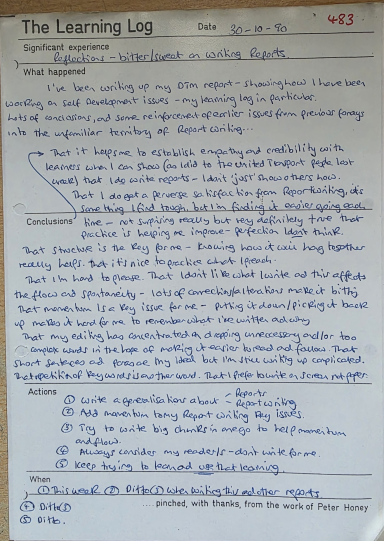 The Learning Log
Date 30-10-90
483.
Significant experience
Reflections - bitter/sweet on Writing Reports.
What happened
I've been writing up my DTM report - showing how I have been
working on Self Development issues - my learning log in particular.
Lots of conclusions, and some reinforcement of earlier issues from previous forays
into the unfamiliar territory of Report Writing...
That it helps me to establish empathy and credibility with
learners when I can show (as I did to the United Transport people last
week) that I do write reports - I don't 'just' show others how.
That I do get a perverse satisfaction from Report writing, it's
something I find tough, but I'm finding it easier going each
Conclusions
time - not surprising really but very definitely true that
practice is helping me improve - perfection I don't think.
That structure is the key for me - knowing how it will hang together
really helps. That it's nice to practice what I preach.
That I'm hard to please. That I don't like what I write and this affects
the flow and spontaneity - lots of corrections/alterations make it bitty
That momentum is a key issue for me - putting it down/picking it back
up makes it hard for me to remember what I've written and why
That my editing has concentrated on dropping unnecessary and/or too
complex words in the hope of making it easier to read and follow. That
short sentences and paras are my ideal but I'm still writing up complicated.
That repetition of key words is another word. That I prefer to write on screen not paper.
Actions
① Write a generalisations about - Reports
- Report writing
② Add momentum to my Report Writing Key issues.
③ Try to write big chunks in one go to help momentum
and flow.
④ Always consider my reader/s - don't write for me.
⑤ Keep trying to learn and use that learning.
When
① This week ② Ditto ③ When writing this and other reports
④ Ditto ③
⑤ Ditto.
....pinched, with thanks, from the work of Peter Honey